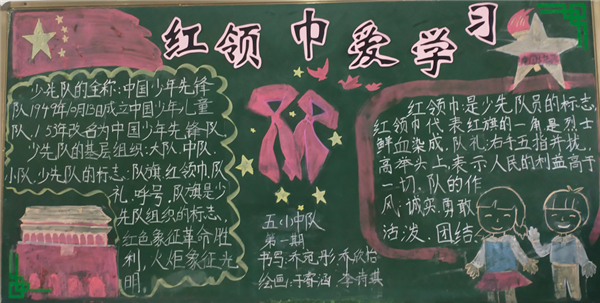 红领巾爱学习
少先队的全称:中国少年先锋
队1949年10月13日成立中国少年儿童
队,1953年改名为中国少年先锋队
少先队的基层组织:大队,中队,
小队,少先队的标志:队旗,红领巾,队
礼,呼号,队旗是少
先队组织的标志,
红色象征革命胜
利,火炬象征光
明.
五(1)中队
第一期
书写:乔苑彤 乔欣怡
绘画:于睿涵 李诗琪
红领巾是少先队员的标志,
红领巾代表红旗的一角是烈士
鲜血染成.队礼:右手五指并拢,
高举头上,表示人民的利益高于
一切,队的作
风:诚实,勇敢
活泼、团结